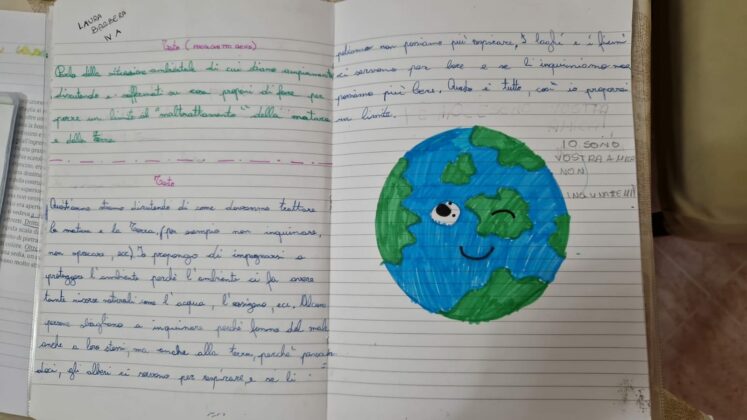 LAURA
BARBERA
IV A
Testo (
Parlo della situazione ambientale di cui stiamo
discutendo e soffermati su cosa proponi di fare per
porre un limite al "maltrattamento" della natura
e della Terra
Testo
Quest'anno stiamo discutendo di come dovremmo trattare
la natura e la Terra, (per esempio non inquinare,
non sprecare, ecc). Io propongo di impegnarci a
proteggere l'ambiente perchè l'ambiente ci fa avere
tante risorse naturali come l'acqua, l'ossigeno, ecc. Alcune
persone sbagliano a inquinare perchè fanno del male
anche a loro stessi, ma anche alla terra, perchè
gli alberi ci servono per respirare, e se li
non possiamo più respirare, I laghi e i fiumi
ci servono per bere e se li inquiniamo non
possiamo più bere. Questo è tutto, così io proporrei
un limite.
IO SONO
VOSTRA AMICA
NON
INQUINATEMI!